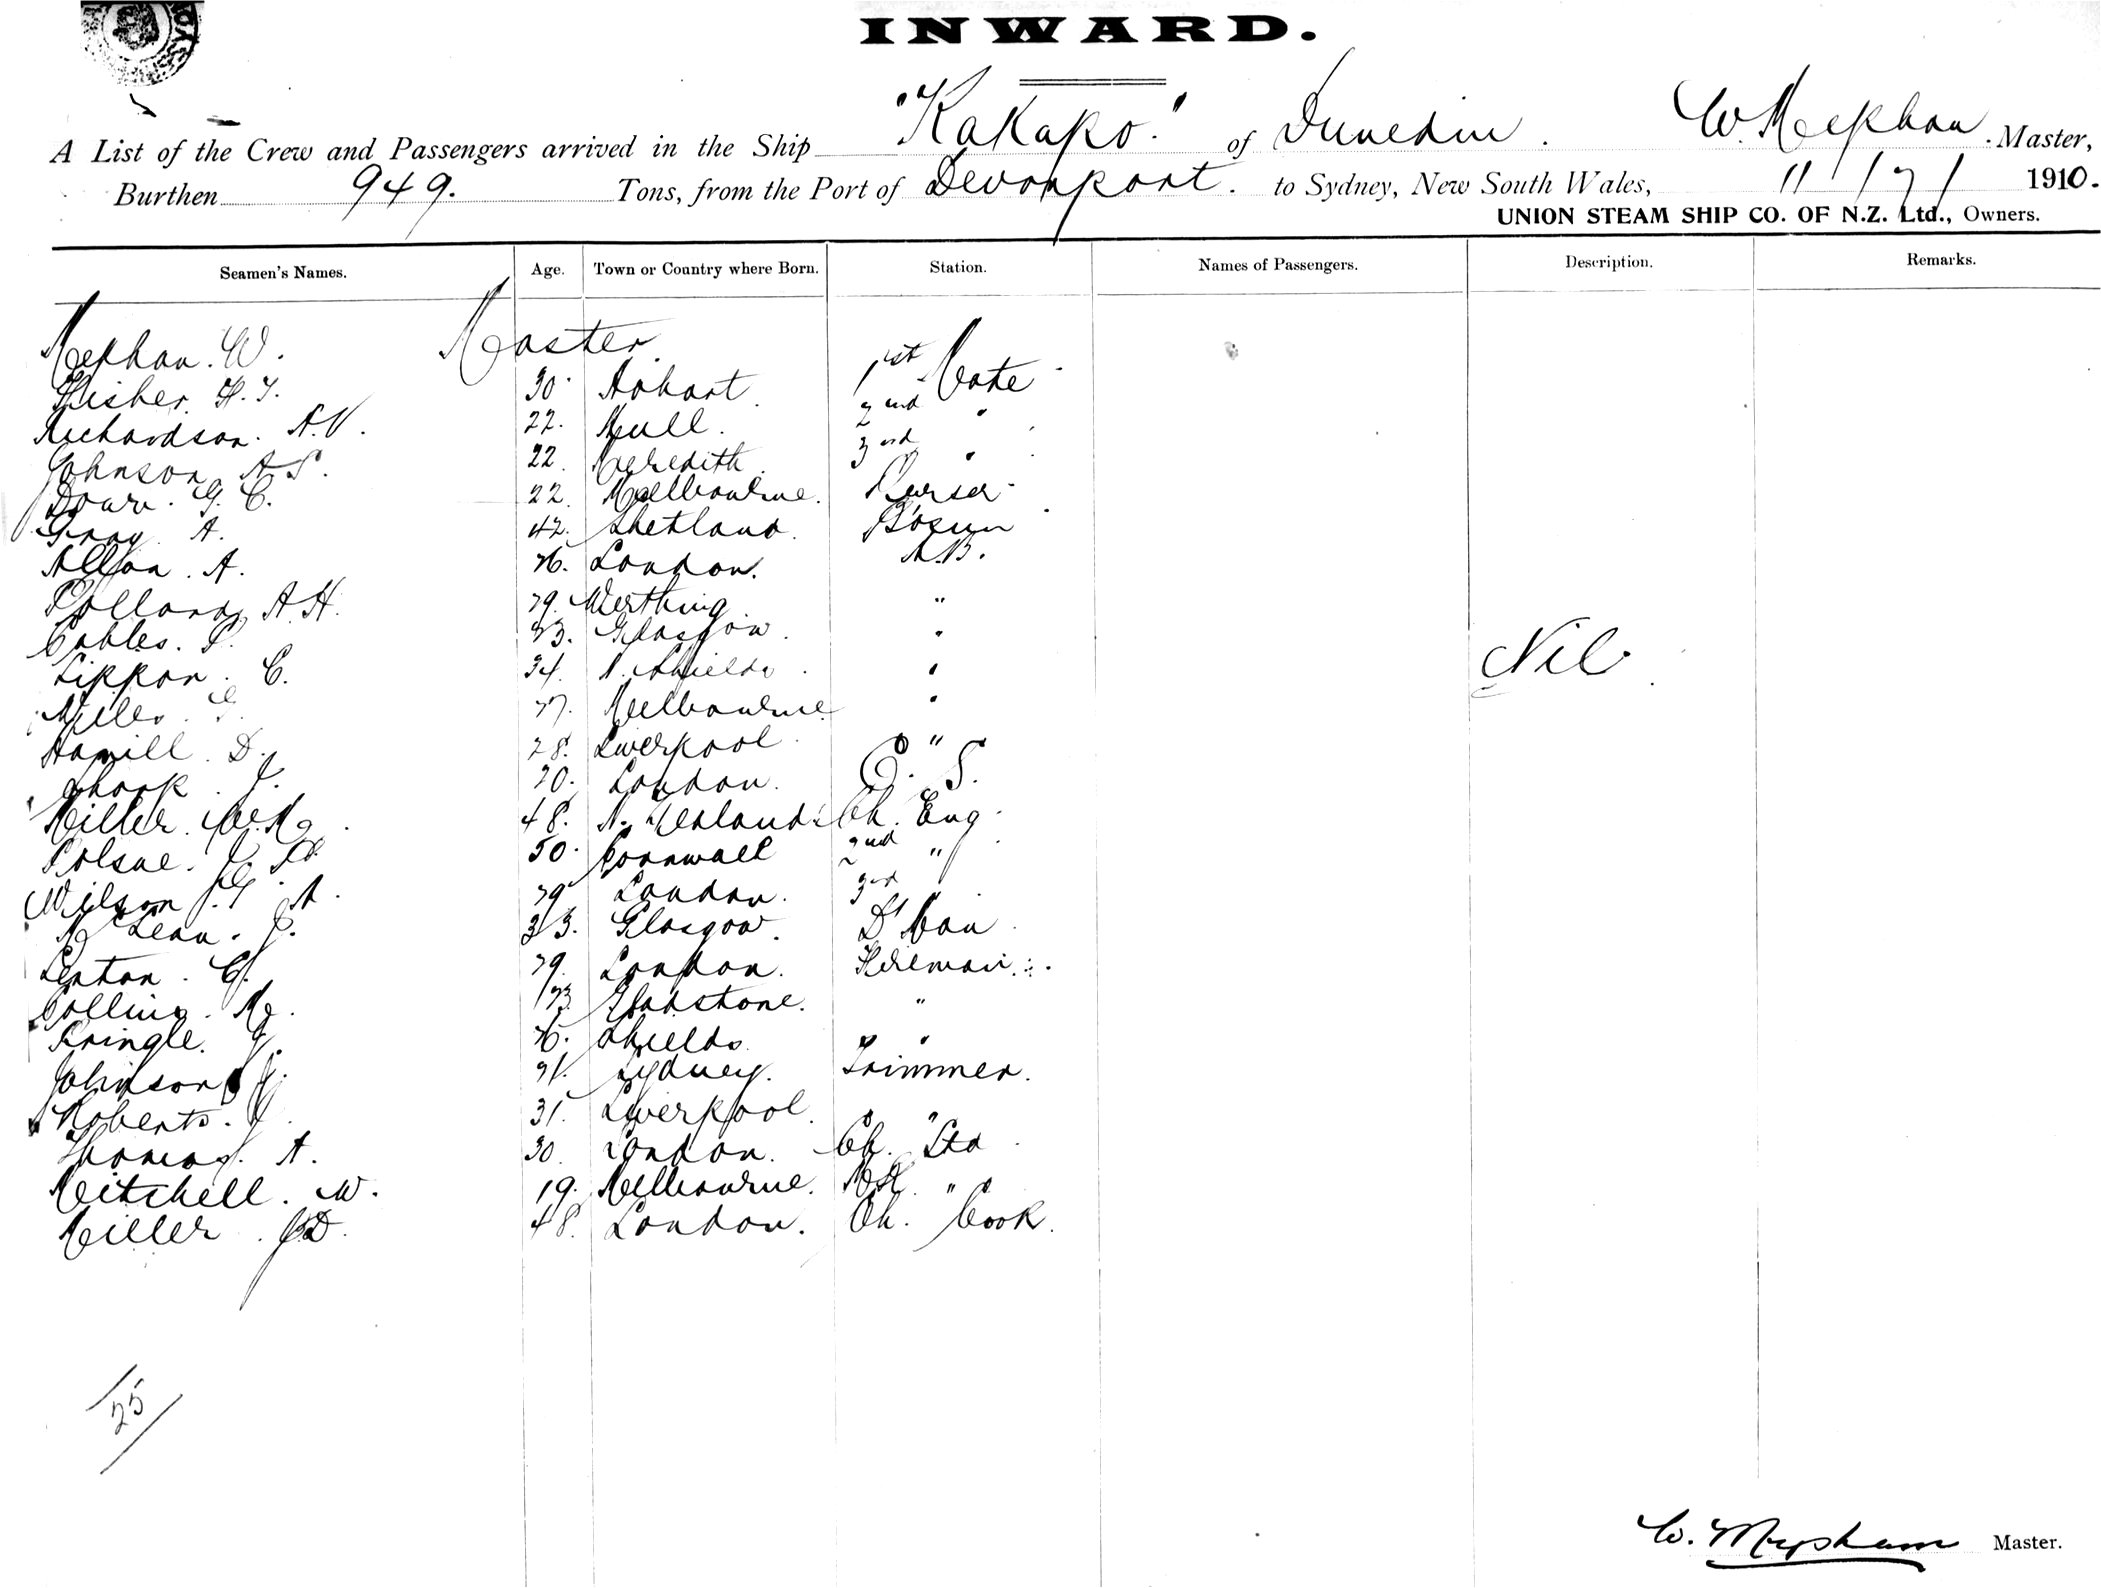 INWARD.
A List of the Crew and Passengers arrived in the Ship "Kakapo." of Dunedin. W. Mephan. Master,
Burthen 949. Tons, from the Port of Devonport. to Sydney, New South Wales, 11/7/1910.
UNION STEAM SHIP CO. OF N.Z. Ltd., Owners.
Seamen's Names. Age. Town or Country where Born. Station. Names of Passengers. Description. Remarks.
Mephan. W. Master.
H. 30 Hobart. 1st Mate
Richardson. A.V. 22. Hull. 2nd "
Johnson A 22. Meredith. 3rd "
G. C. 22. Melbourne. Purser
Gray. A. 42. Shetland. Bosun
A. 26. London. A.B.
Pollard, A.H. 29. Worthing "
Cables. 23. Glasgow. "
Lippon. C. 34. N. Shields. "
27. Melbourne "
D. 28. Liverpool. "
20. London. O. S.
Miller. 48. N. Zealand Ch. Eng
Polsue. 50. Cornwall 2nd "
Wilson A. 29 London. 3rd "
McLean. 33. Glasgow. D' Man
29. London. Fireman
Collins. 23 Gladstone. "
Pringle. 26. Shields "
Johnson J. 21. Sydney. Trimmer.
Roberts. J. 31. Liverpool "
Thomas. A. 30. London. Ch. Std
Mitchell. W. 19. Melbourne. "
Miller. 48. London. Ch. Cook.
Nil.
25
W. Mepham Master.